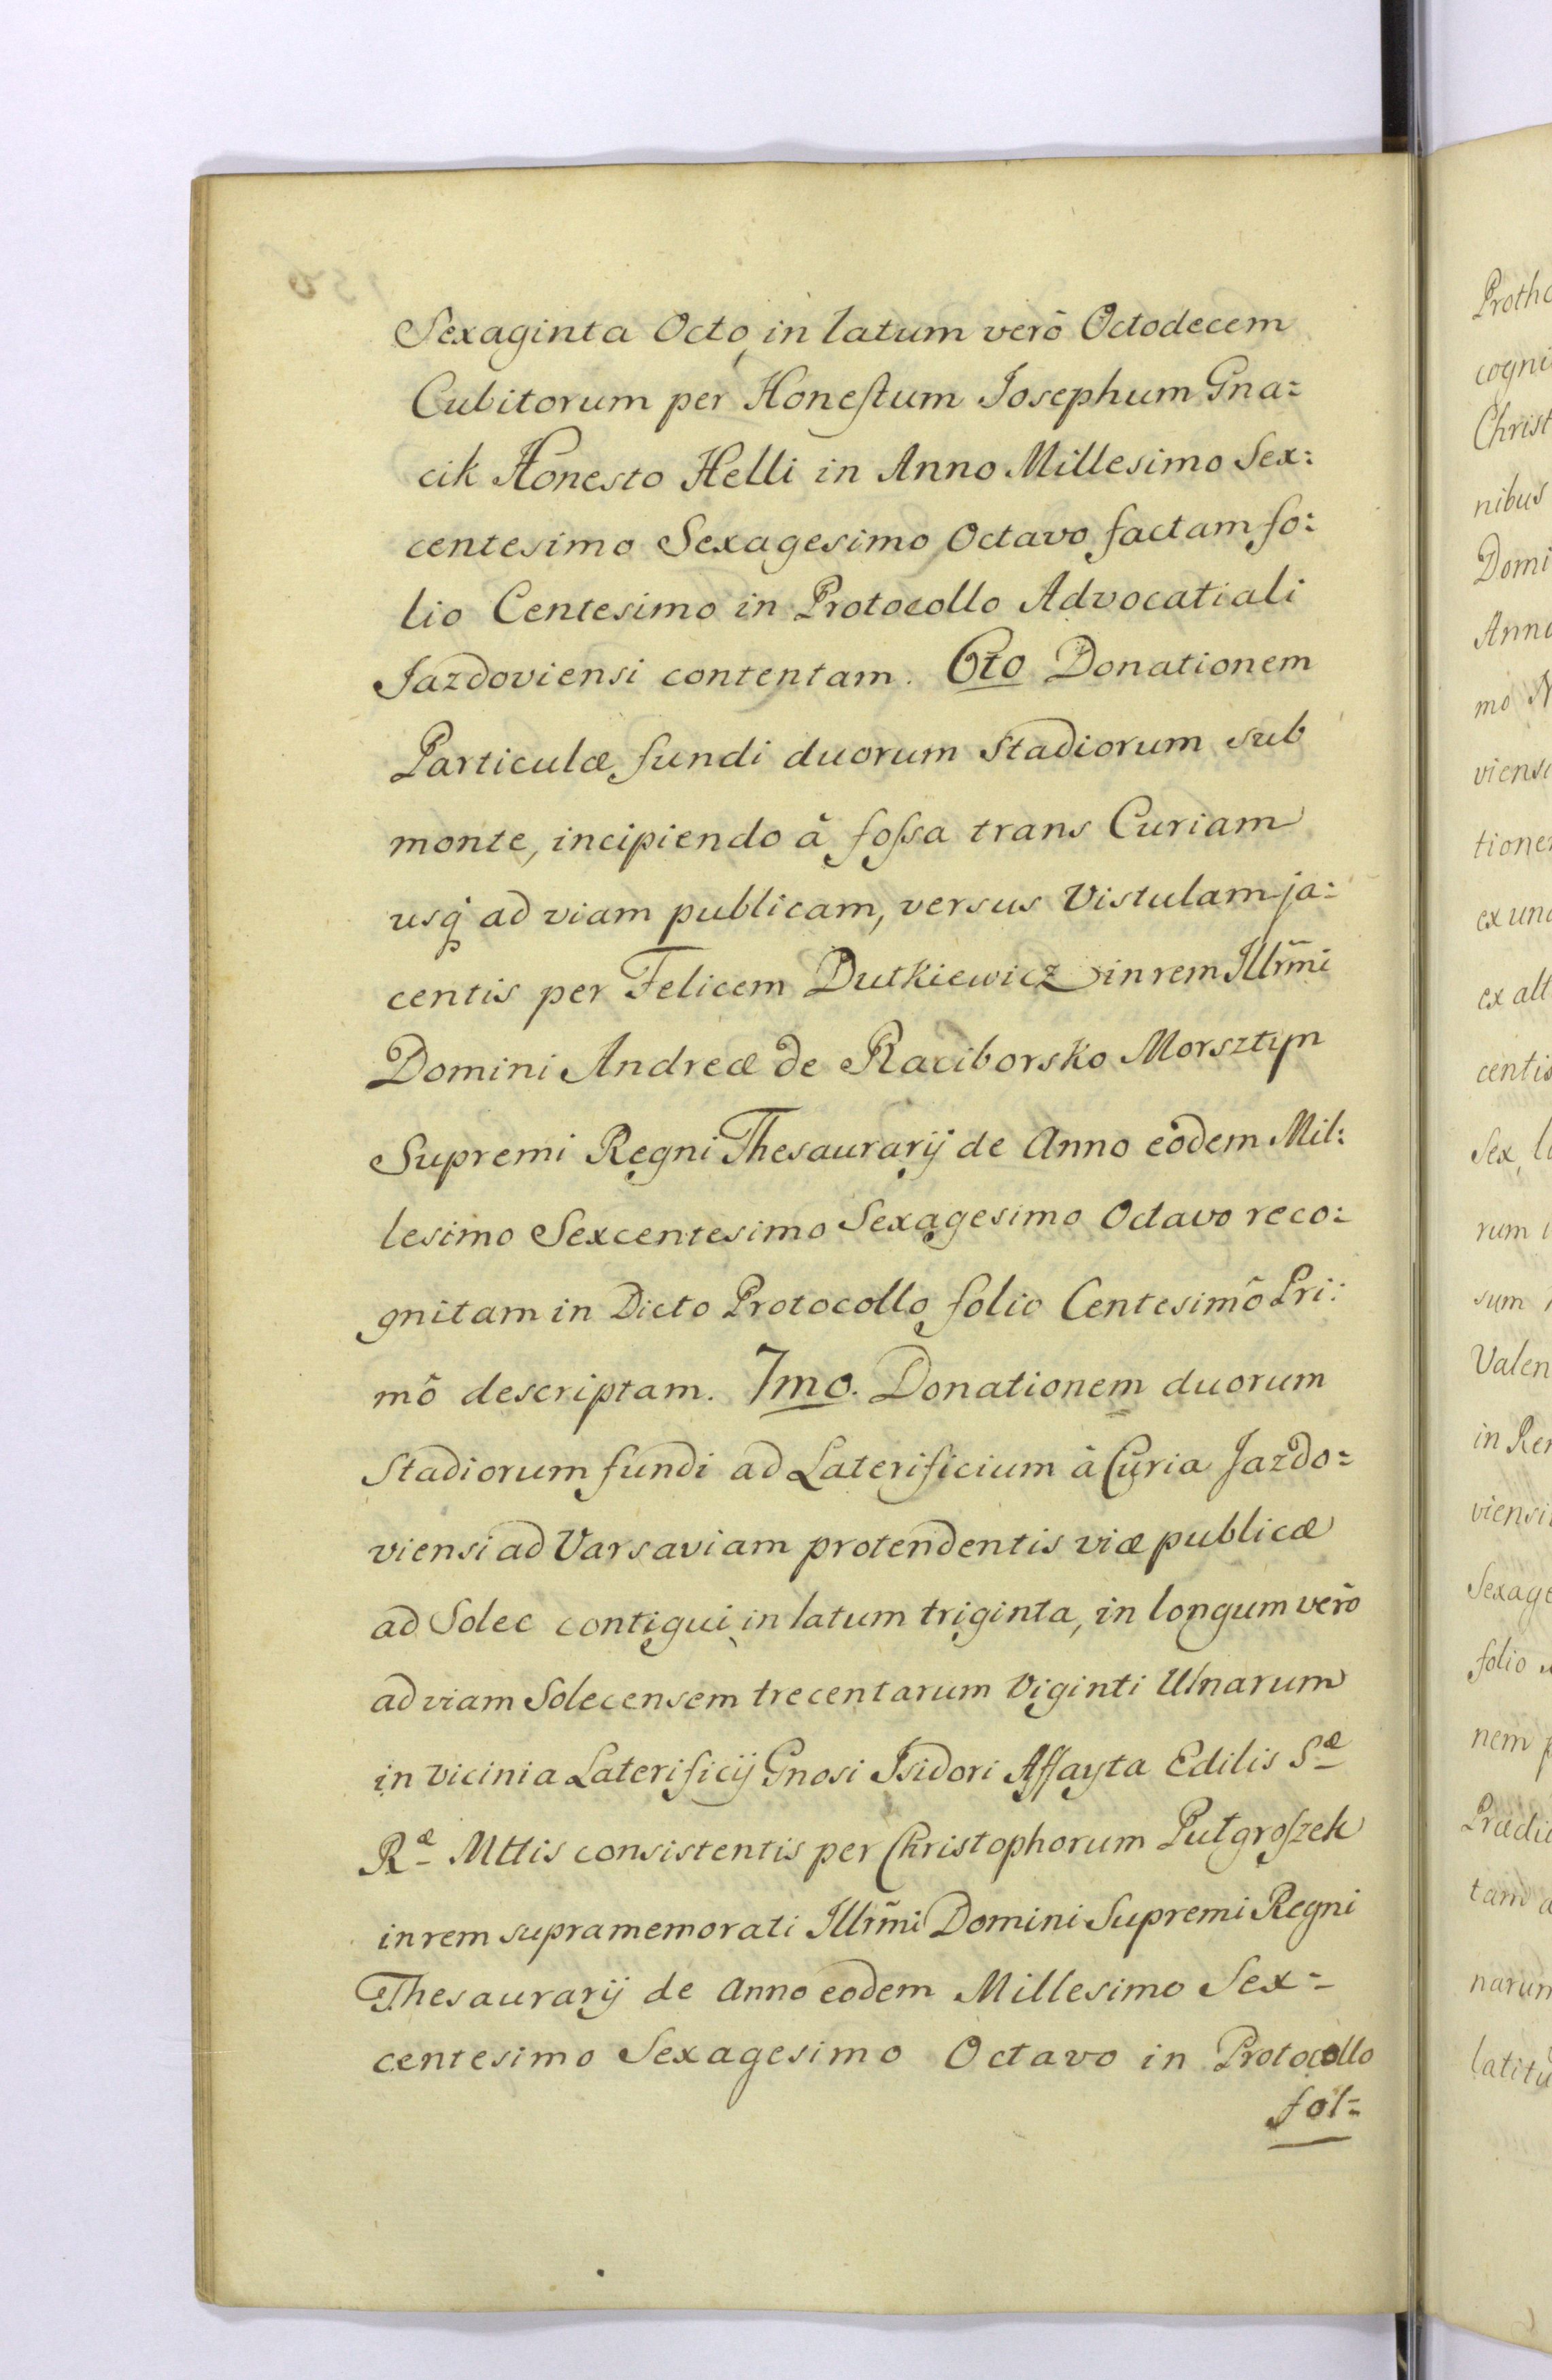 Sexaginta Octo, in latum verō Octodecem
Cubitorum per Honeſtum Iosephum Gna=
cik Honesto Helli in Anno Millesimo Sex:
centesimo Sexagesimo Octavo factam fo:
lio Centesimo in Protocollo Advocatiali
Jazdoviensi contentam. 6to Donationem
Particulæ fundi duorum Stadiorum sub
monte, incipiendo â foſsa trans Curiam
usq́ ad viam publicam, versus Vistulam ja=
centis per Felicem Dutkiewicz in rem Illrm̃i
Domini Andreæ de Raciborsko Morsztyn
Supremi Regni Thesaurarij de Anno eôdem Mil:
lesimo Sexcentesimo Sexagesimo Octavo reco:
gnitam in Dicto Protocollo folio Centesimô Pri:
mô descriptam. 7mo. Donationem duorum
Stadiorum fundi ad Laterificium â Curia Jazdo=
viensi ad Varsaviam protendentis viæ publicæ
ad Solec contigui, in latum triginta, in longum verō
ad viam Solecensem trecentarum Viginti Ulnarum
in vicinia Laterificij Gnosi Isidori Affayta Edilis Sæ
Ræ Mttis consistentis per Christophorum Pułgroſzek
in rem supramemorati Illrm̃i Domini Supremi Regni
Thesaurarij de Anno eodem Millesimo Sex=
centesimo Sexagesimo Octavo in Protocollo
fol=
Protho
cogni
Christ
nibus
Domi
Anno
mo
viensi
tione
ex una
ex alt
centis
Sex, la
rum i
sum
Valen
in Re
viensi
Sexage
folio
nem
Prædi
tam a
narum
latitu